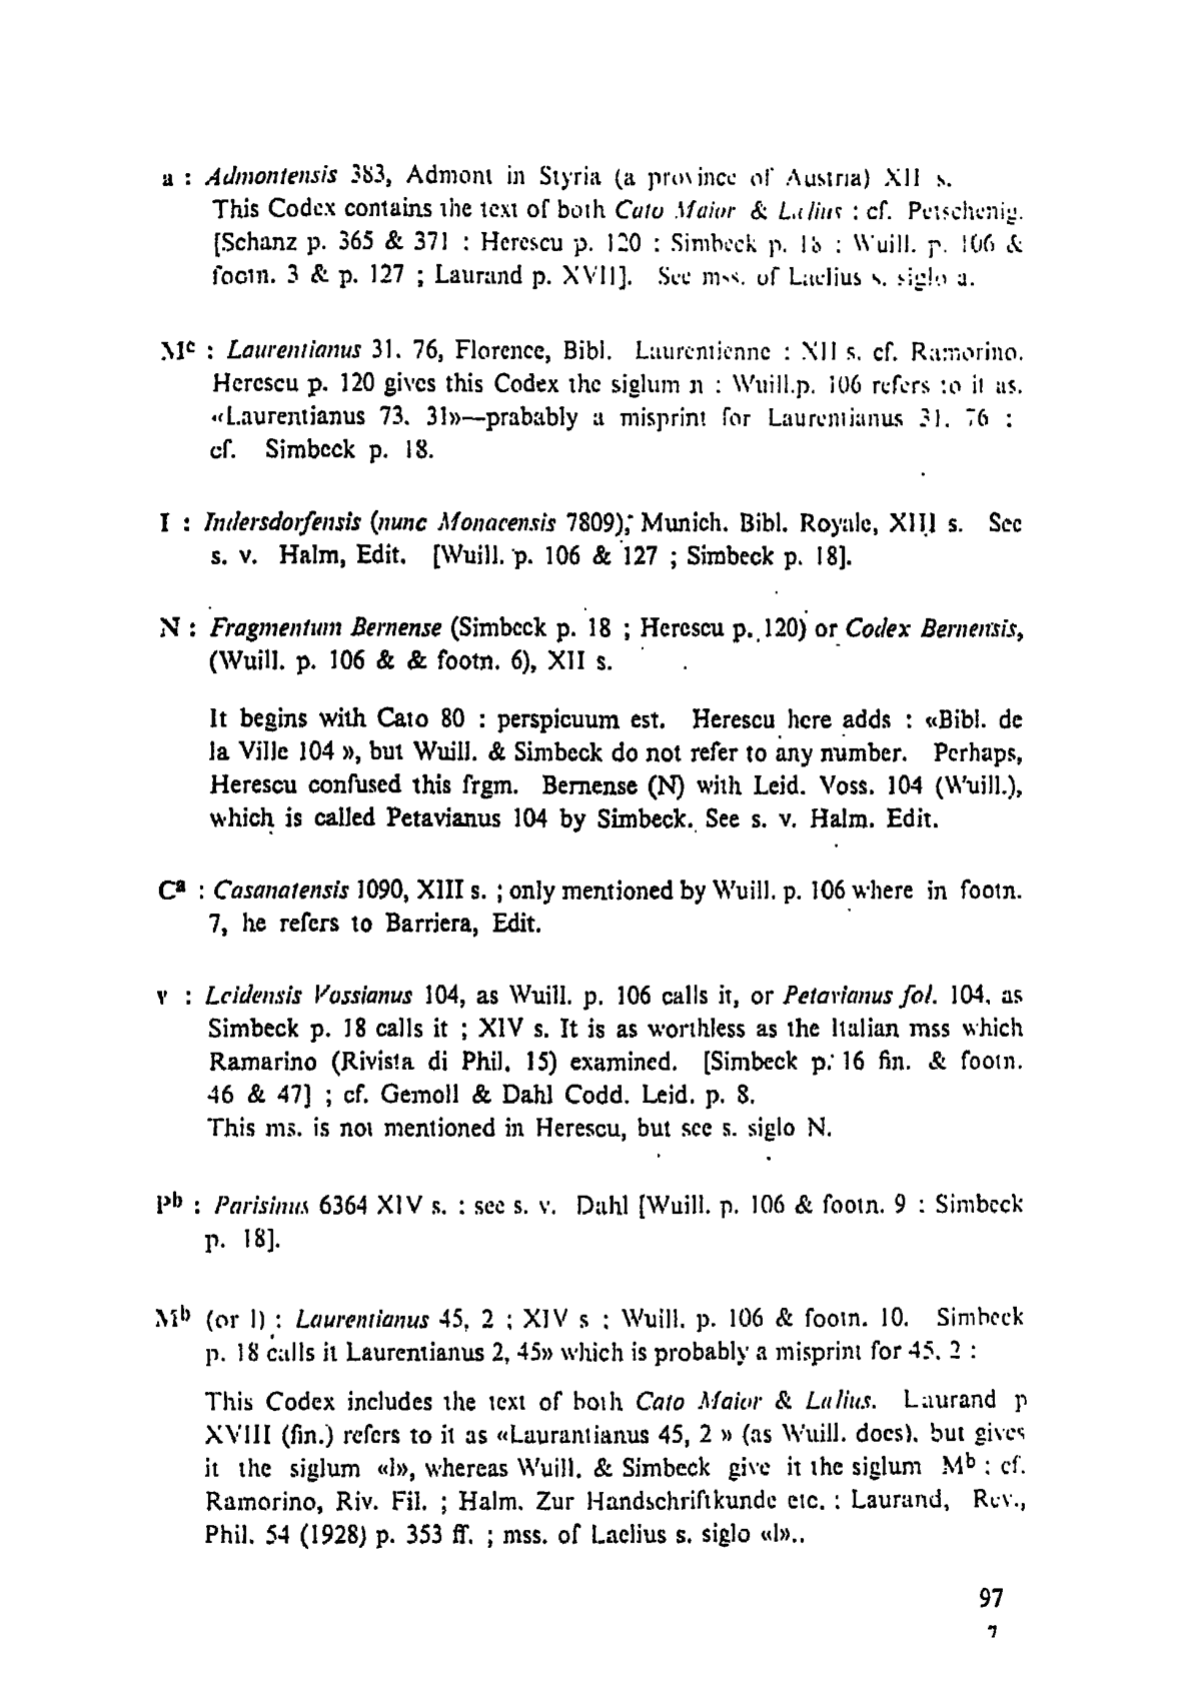 a : Admontensis 383, Admont in Styria (a province of Austria) XII s.
This Codex contains the text of both Cato Maior & Lælius : cf. Petschenig.
[Schanz p. 365 & 371 : Herescu p. 120 : Simbeck p. 18 : Wuill. p. 106 &
footn. 3 & p. 127 ; Laurand p. XVII]. See mss. of Laelius s. siglo a.
Mᶜ : Laurentianus 31. 76, Florence, Bibl. Laurentienne : XII s. cf. Ramorino.
Herescu p. 120 gives this Codex the siglum n : Wuill.p. 106 refers to it as.
«Laurentianus 73. 31»—prabably a misprint for Laurentianus 31. 76 :
cf. Simbeck p. 18.
I : Indersdorfensis (nunc Monacensis 7809), Munich. Bibl. Royale, XIII s. See
s. v. Halm, Edit. [Wuill. p. 106 & 127 ; Simbeck p. 18].
N : Fragmentum Bernense (Simbeck p. 18 ; Herescu p. 120) or Codex Bernensis,
(Wuill. p. 106 & & footn. 6), XII s.
It begins with Cato 80 : perspicuum est. Herescu here adds : «Bibl. de
la Ville 104 », but Wuill. & Simbeck do not refer to any number. Perhaps,
Herescu confused this frgm. Bernense (N) with Leid. Voss. 104 (Wuill.),
which is called Petavianus 104 by Simbeck. See s. v. Halm. Edit.
Cᵃ : Casanatensis 1090, XIII s. ; only mentioned by Wuill. p. 106 where in footn.
7, he refers to Barriera, Edit.
v : Leidensis Vossianus 104, as Wuill. p. 106 calls it, or Petavianus fol. 104, as
Simbeck p. 18 calls it ; XIV s. It is as worthless as the Italian mss which
Ramarino (Rivista di Phil. 15) examined. [Simbeck p. 16 fin. & footn.
46 & 47] ; cf. Gemoll & Dahl Codd. Leid. p. 8.
This ms. is not mentioned in Herescu, but see s. siglo N.
Pᵇ : Parisinus 6364 XIV s. : see s. v. Dahl [Wuill. p. 106 & footn. 9 : Simbeck
p. 18].
Mᵇ (or l) : Laurentianus 45, 2 ; XIV s : Wuill. p. 106 & footn. 10. Simbeck
p. 18 calls it Laurentianus 2, 45» which is probably a misprint for 45. 2 :
This Codex includes the text of both Cato Maior & Lælius. Laurand p
XVIII (fin.) refers to it as «Laurantianus 45, 2 » (as Wuill. does). but gives
it the siglum «l», whereas Wuill. & Simbeck give it the siglum Mᵇ : cf.
Ramorino, Riv. Fil. ; Halm. Zur Handschriftkunde etc. : Laurand, Rev.,
Phil. 54 (1928) p. 353 ff. ; mss. of Laelius s. siglo «l»..
97
7